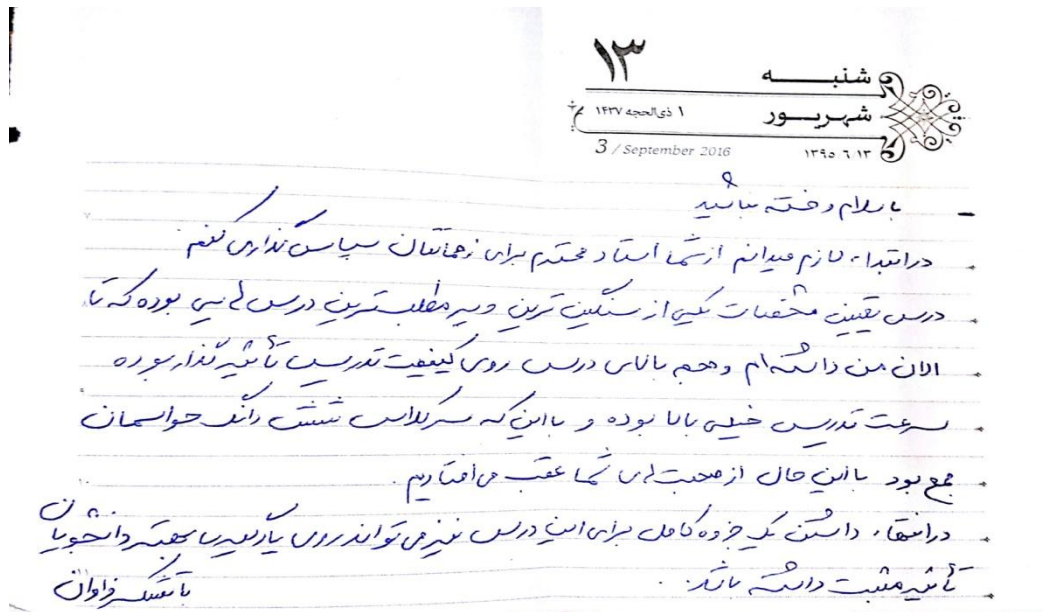 شنبه ۱۳
شهریور ۱ ذی‌الحجه ۱۴۳۷
۱۳۹۵.۶.۱۳ 3 / September 2016
با سلام و خسته نباشید
در ابتداء لازم میدانم از شما استاد محترم برای زحماتتان سپاس گذاری کنم.
درس تعیین مختصات یکی از سنگین ترین و پر مطلب ترین درس هایی بوده که تا
الان من داشته ام و حجم بالای درس روی کیفیت تدریس تأثیر گذار بوده
سرعت تدریس خیلی بالا بوده و با این که سر کلاس شش دانگ حواسمان
جمع بود با این حال از صحبت های شما عقب می افتادیم.
در انتهاء داشتن یک جزوه کامل برای این درس نیز می تواند روی یادگیری بهتر دانشجویان
تأثیر مثبت داشته باشد. با تشکر فراوان